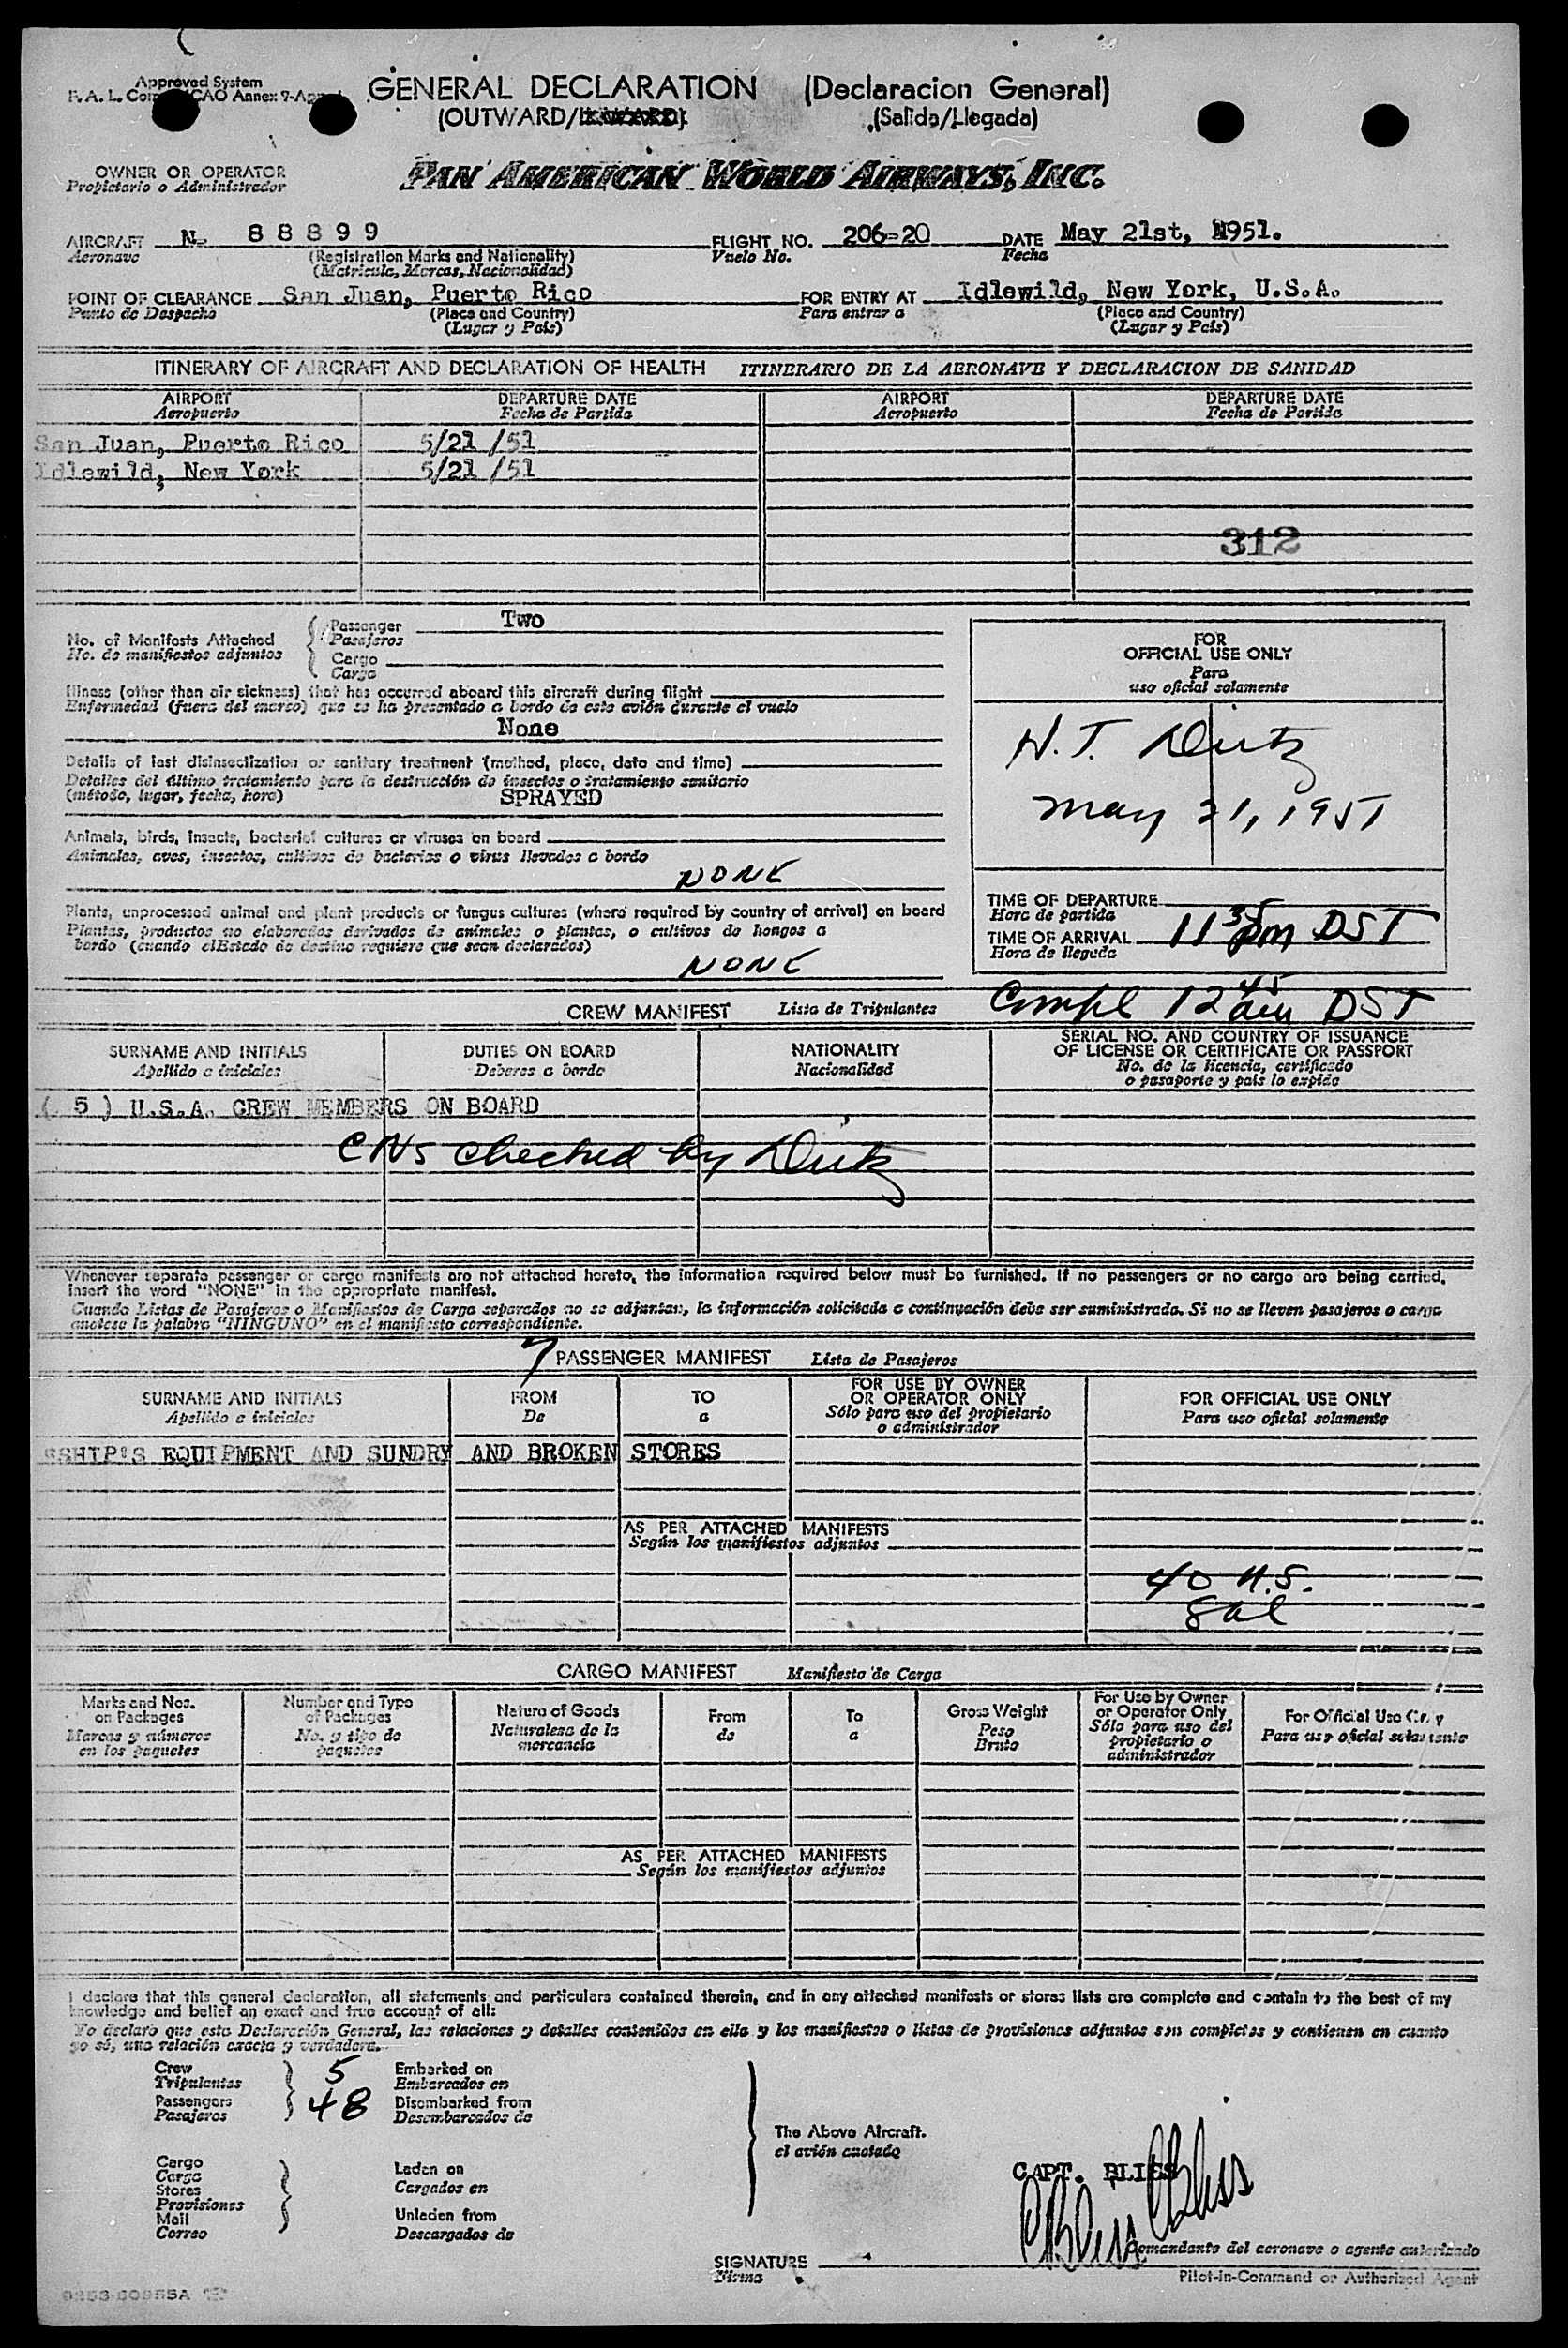 Approved System
GENERAL DECLARATION (Declaracion General)
F. A. L. CAO Annex 7-
(OUTWARD/ (Salida/Llegada)
OWNER OR OPERATOR
Propietario o Administrador
PAN AMERICAN WORLD AIRWAYS, INC.
AIRCRAFT N- 88899 FLIGHT NO. 206-20 DATE May 21st, 1951.
Aeronave (Registration Marks and Nationality) Vuelo No. Fecha
(Matricula, Marcas, Nacionalidad)
POINT OF CLEARANCE San Juan, Puerto Rico FOR ENTRY AT Idlewild, New York, U.S.A.
Punto de Despacho (Place and Country) Para entrar a (Place and Country)
(Lugar y País) (Lugar y País)
ITINERARY OF AIRCRAFT AND DECLARATION OF HEALTH ITINERARIO DE LA AERONAVE Y DECLARACION DE SANIDAD
AIRPORT DEPARTURE DATE AIRPORT DEPARTURE DATE
Aeropuerto Fecha de Partida Aeropuerto Fecha de Partida
San Juan, Puerto Rico 5/21 /51
Idlewild, New York 5/21 /51
312
No. of Manifests Attached Passenger Two
No. de manifiestos adjuntos Pasajeros
Cargo
Carga
Illness (other than air sickness) that has occurred aboard this aircraft during flight
Enfermedad (fuera del mareo) que se ha presentado a bordo de este avión durante el vuelo
None
Details of last disinsectization or sanitary treatment (method, place, date and time)
Detalles del último tratamiento para la destrucción de insectos o tratamiento sanitario
(método, lugar, fecha, hora) SPRAYED
Animals, birds, insects, bacterial cultures or viruses on board
Animales, aves, insectos, cultivos de bacterias o virus llevados a bordo
NONE
Plants, unprocessed animal and plant products or fungus cultures (where required by country of arrival) on board
Plantas, productos no elaborados derivados de animales o plantas, o cultivos de hongos a
bordo (cuando elEstado de destino requiere que sean declarados)
NONE
FOR
OFFICIAL USE ONLY
Para
uso oficial solamente
May 21, 1951
TIME OF DEPARTURE
Hora de partida
TIME OF ARRIVAL 11 35 pm DST
Hora de llegada
Compl 12 45 am DST
CREW MANIFEST Lista de Tripulantes
SURNAME AND INITIALS DUTIES ON BOARD NATIONALITY SERIAL NO. AND COUNTRY OF ISSUANCE
OF LICENSE OR CERTIFICATE OR PASSPORT
Apellido e iniciales Deberes a bordo Nacionalidad No. de la licencia, certificado
o pasaporte y pais lo expide
( 5 ) U.S.A. CREW MEMBERS ON BOARD
checked by
Whenever separate passenger or cargo manifests are not attached hereto, the information required below must be furnished. If no passengers or no cargo are being carried,
insert the word "NONE" in the appropriate manifest.
Cuando Listas de Pasajeros o Manifiestos de Carga separados no se adjuntan, la información solicitada a continuación debe ser suministrada. Si no se lleven pasajeros o carga
anotese la palabra "NINGUNO" en el manifiesto correspondiente.
7 PASSENGER MANIFEST Lista de Pasajeros
SURNAME AND INITIALS FROM TO FOR USE BY OWNER
OR OPERATOR ONLY FOR OFFICIAL USE ONLY
Apellido e iniciales De a Sólo para uso del propietario
o administrador Para uso oficial solamente
SSHIP'S EQUIPMENT AND SUNDRY AND BROKEN STORES
AS PER ATTACHED MANIFESTS
Según los manifiestos adjuntos
40 U.S.
8 al
CARGO MANIFEST Manifiesto de Carga
Marks and Nos.
on Packages
Marcas y números
en los paquetes
Number and Type
of Packages
No. y tipo de
paquetes
Nature of Goods
Naturaleza de la
mercancía
From
de
To
a
Gross Weight
Peso
Bruto
For Use by Owner
or Operator Only
Sólo para uso del
propietario o
administrador
For Official Use Only
Para uso oficial solamente
AS PER ATTACHED MANIFESTS
Según los manifiestos adjuntos
I declare that this general declaration, all statements and particulars contained therein, and in any attached manifests or stores lists are complete and contain to the best of my
knowledge and belief an exact and true account of all:
Yo declaro que esta Declaración General, las relaciones y detalles contenidos en ella y los manifiestos o listas de provisiones adjuntos son completos y contienen en cuanto
yo sé, una relación exacta y verdadera.
Crew 5 Embarked on
Tripulantes Embarcados en
Passengers 48 Disembarked from
Pasajeros Desembarcados de
The Above Aircraft.
el avión anotado
Cargo
Carga
Stores
Provisiones
Mail
Correo
Laden on
Cargados en
Unladen from
Descargados de
CAPT. BLISS
CBliss
CBliss
Comandante del aeronave o agente autorizado
SIGNATURE
Firma
Pilot-in-Command or Authorized Agent